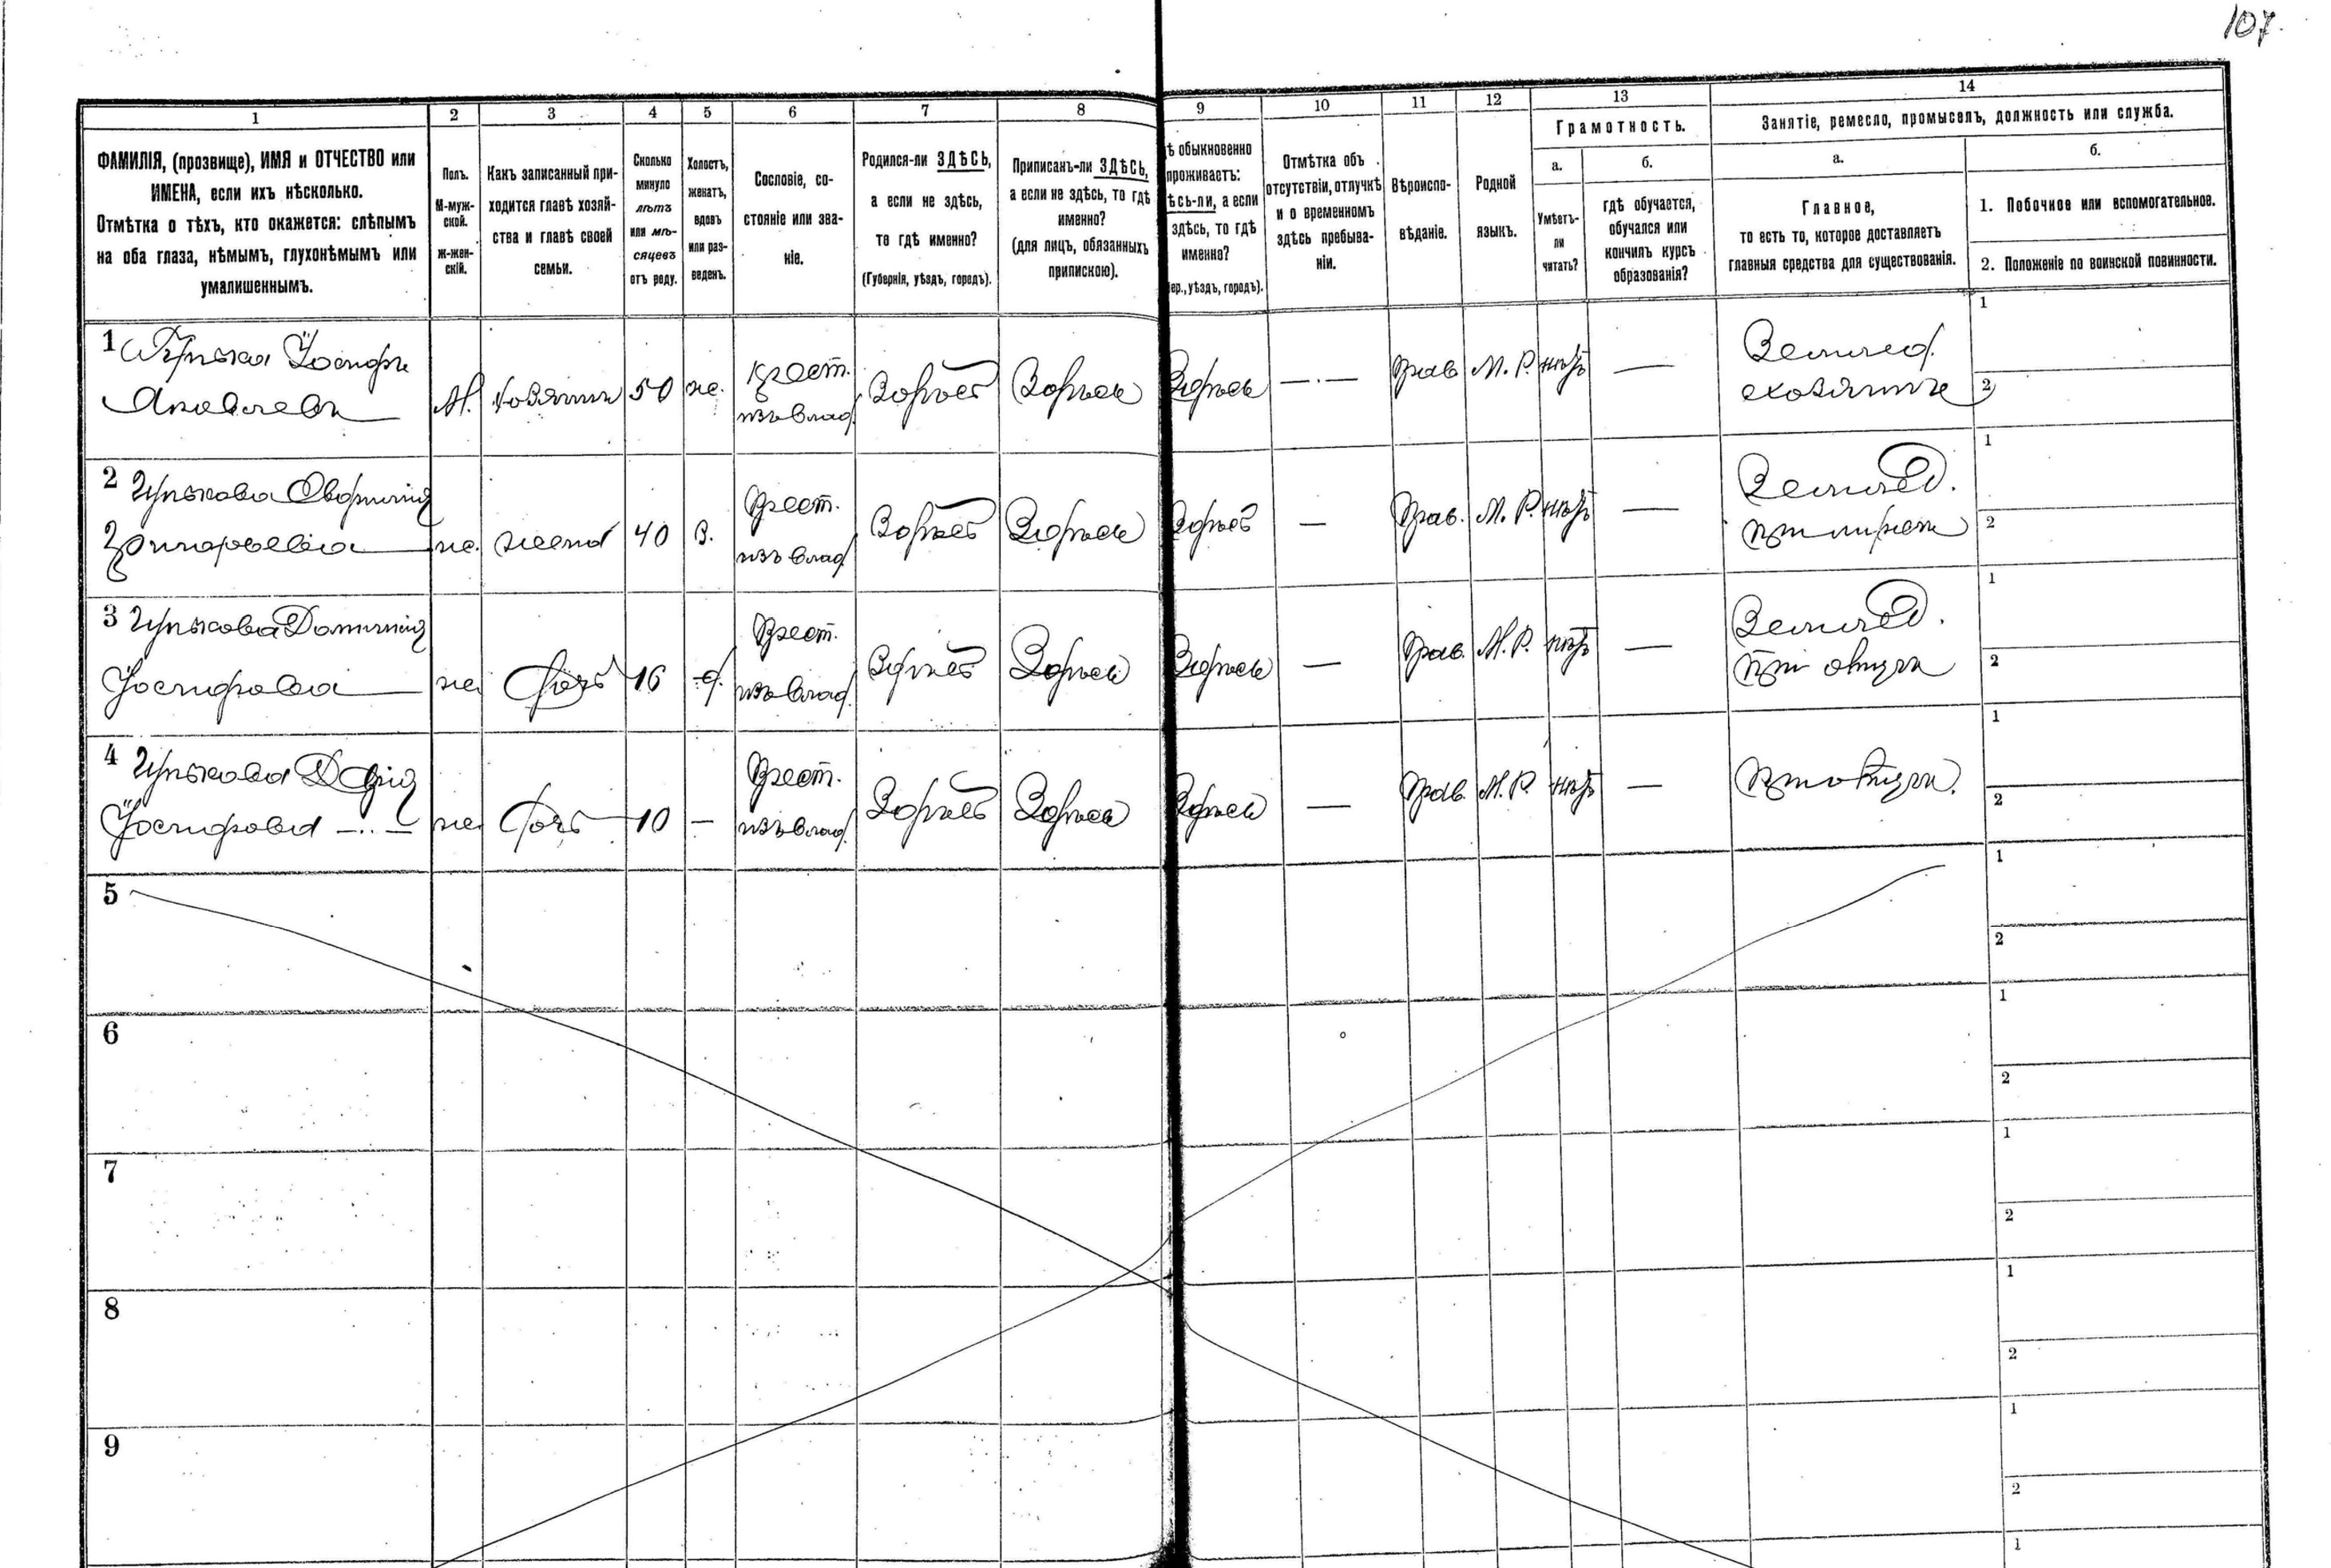 107.
1 2 3 4 5 6 7 8 9 10 11 12 13 14
ФАМИЛІЯ, (прозвище), ИМЯ и ОТЧЕСТВО или
ИМЕНА, если ихъ нѣсколько.
Отмѣтка о тѣхъ, кто окажется: слѣпымъ
на оба глаза, нѣмымъ, глухонѣмымъ или
умалишеннымъ.
Полъ.
М-муж-
ской.
ж-жен-
скій.
Какъ записанный при-
ходится главѣ хозяй-
ства и главѣ своей
семьи.
Сколько
минуло
лѣтъ
или мѣ-
сяцевъ
отъ роду.
Холостъ,
женатъ,
вдовъ
или раз-
веденъ.
Сословіе, со-
стояніе или зва-
ніе.
Родился-ли ЗДѢСЬ,
а если не здѣсь,
то гдѣ именно?
(Губернія, уѣздъ, городъ).
Приписанъ-ли ЗДѢСЬ,
а если не здѣсь, то гдѣ
именно?
(для лицъ, обязанныхъ
припискою).
ѣ обыкновенно
проживаетъ:
ѣсь-ли, а если
здѣсь, то гдѣ
именно?
ер., уѣздъ, городъ).
Отмѣтка объ
отсутствіи, отлучкѣ
и о временномъ
здѣсь пребыва-
ніи.
Вѣроиспо-
вѣданіе.
Родной
языкъ.
Грамотность.
а.
Умѣетъ-
ли
читать?
б.
гдѣ обучается,
обучался или
кончилъ курсъ
образованія?
Занятіе, ремесло, промыселъ, должность или служба.
а.
Главное,
то есть то, которое доставляетъ
главныя средства для существованія.
б.
1. Побочное или вспомогательное.
2. Положеніе по воинской повинности.
1 Іосифъ
Яковлевъ
М. хозяинъ 50 ж. крест.
изъ влад. Здѣсь Здѣсь Здѣсь — . — Прав М. Р. нѣтъ — Землед.
хозяинъ
1
2
2
ж. жена 40 З. Крест.
изъ влад. Здѣсь Здѣсь Здѣсь — Прав. М. Р. нѣтъ — Землед.
при мужѣ
1
2
3
Іосифова
ж. дочь 16 д. Крест.
изъ влад. Здѣсь Здѣсь Здѣсь — Прав. М. Р. нѣтъ — Землед.
при отцѣ
1
2
4
Іосифова
ж. дочь 10 — Крест.
изъ влад. Здѣсь Здѣсь Здѣсь — Прав. М. Р. нѣтъ — при отцѣ.
1
2
5
1
2
6
1
2
7
1
2
8
1
2
9
1
2
1